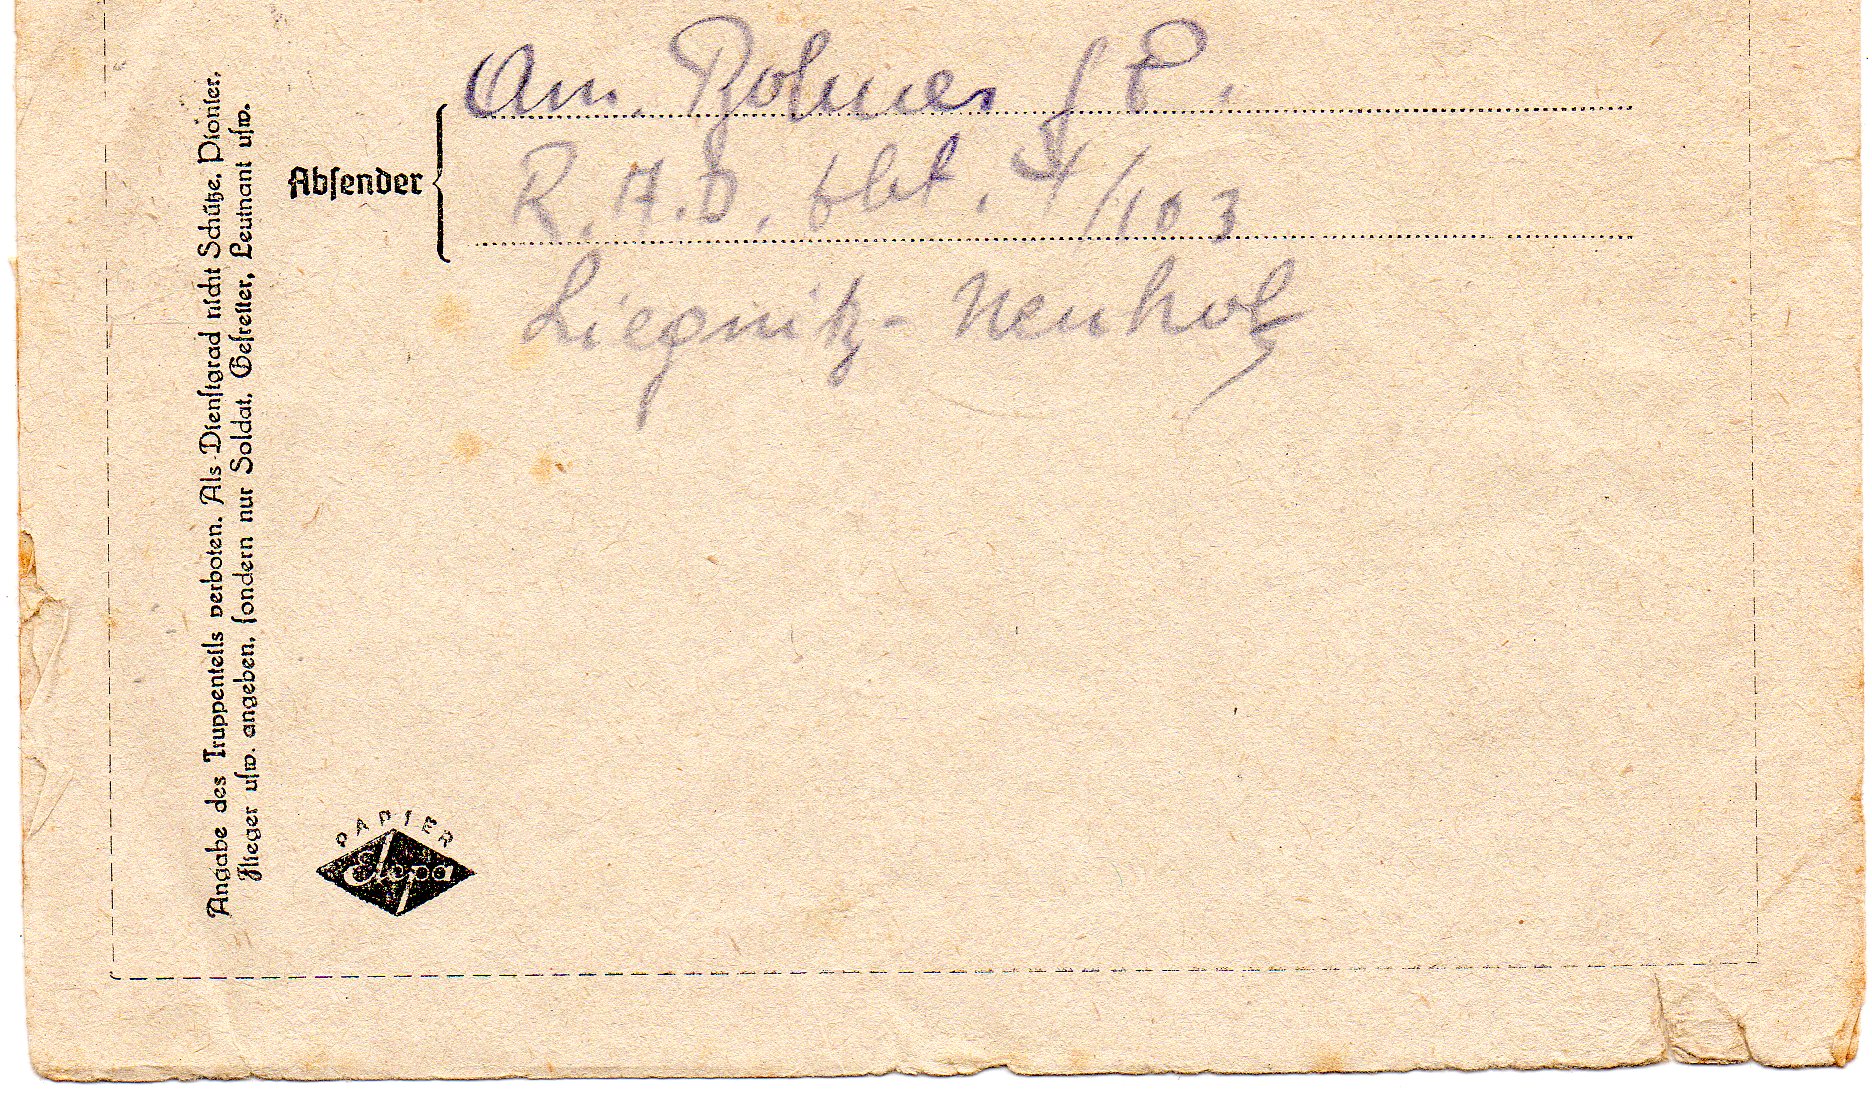 Am. Rohmer
Absender
R.A.D. Abt. 4/103
Liegnitz-Neuhof
Angabe des Truppenteils verboten. Als Dienstgrad nicht Schütze, Pionier,
Flieger usw. angeben, sondern nur Soldat, Gefreiter, Leutnant usw.
PAPIER
Elopa